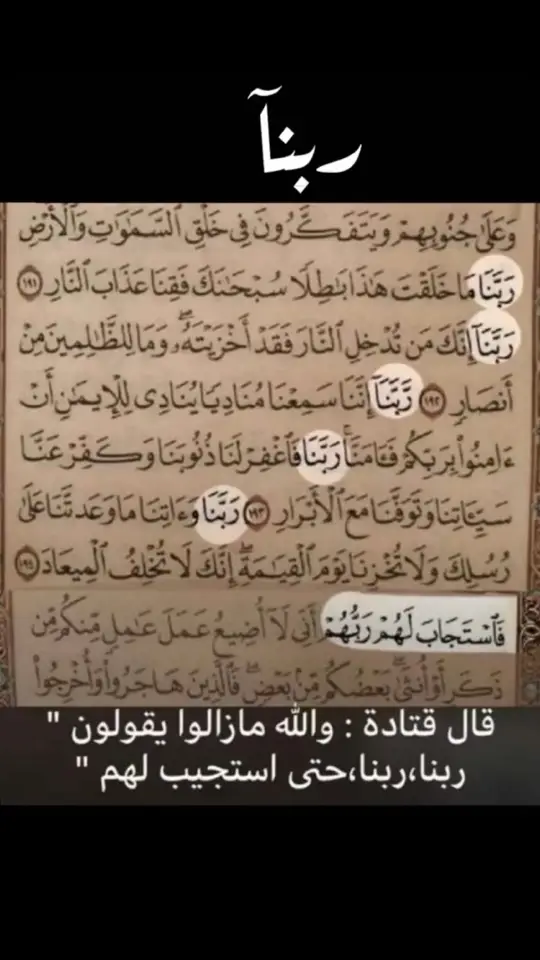 ربنآ
وَعَلَىٰ جُنُوبِهِمْ وَيَتَفَكَّرُونَ فِى خَلْقِ ٱلسَّمَٰوَٰتِ وَٱلْأَرْضِ
رَبَّنَا مَا خَلَقْتَ هَٰذَا بَٰطِلًا سُبْحَٰنَكَ فَقِنَا عَذَابَ ٱلنَّارِ ١٩١
رَبَّنَآ إِنَّكَ مَن تُدْخِلِ ٱلنَّارَ فَقَدْ أَخْزَيْتَهُۥ ۖ وَمَا لِلظَّٰلِمِينَ مِنْ
أَنصَارٍ ١٩٢ رَّبَّنَآ إِنَّنَا سَمِعْنَا مُنَادِيًا يُنَادِى لِلْإِيمَٰنِ أَنْ
ءَامِنُوا۟ بِرَبِّكُمْ فَـَٔامَنَّا ۚ رَبَّنَا فَٱغْفِرْ لَنَا ذُنُوبَنَا وَكَفِّرْ عَنَّا
سَيِّـَٔاتِنَا وَتَوَفَّنَا مَعَ ٱلْأَبْرَارِ ١٩٣ رَبَّنَا وَءَاتِنَا مَا وَعَدتَّنَا عَلَىٰ
رُسُلِكَ وَلَا تُخْزِنَا يَوْمَ ٱلْقِيَٰمَةِ ۗ إِنَّكَ لَا تُخْلِفُ ٱلْمِيعَادَ ١٩٤
فَٱسْتَجَابَ لَهُمْ رَبُّهُمْ أَنِّى لَآ أُضِيعُ عَمَلَ عَٰمِلٍ مِّنكُم مِّن
ذَكَرٍ أَوْ أُنثَىٰ ۖ بَعْضُكُم مِّنۢ بَعْضٍ ۖ فَٱلَّذِينَ هَاجَرُوا۟ وَأُخْرِجُوا۟
قال قتادة : والله مازالوا يقولون "
ربنا،ربنا،حتى استجيب لهم "